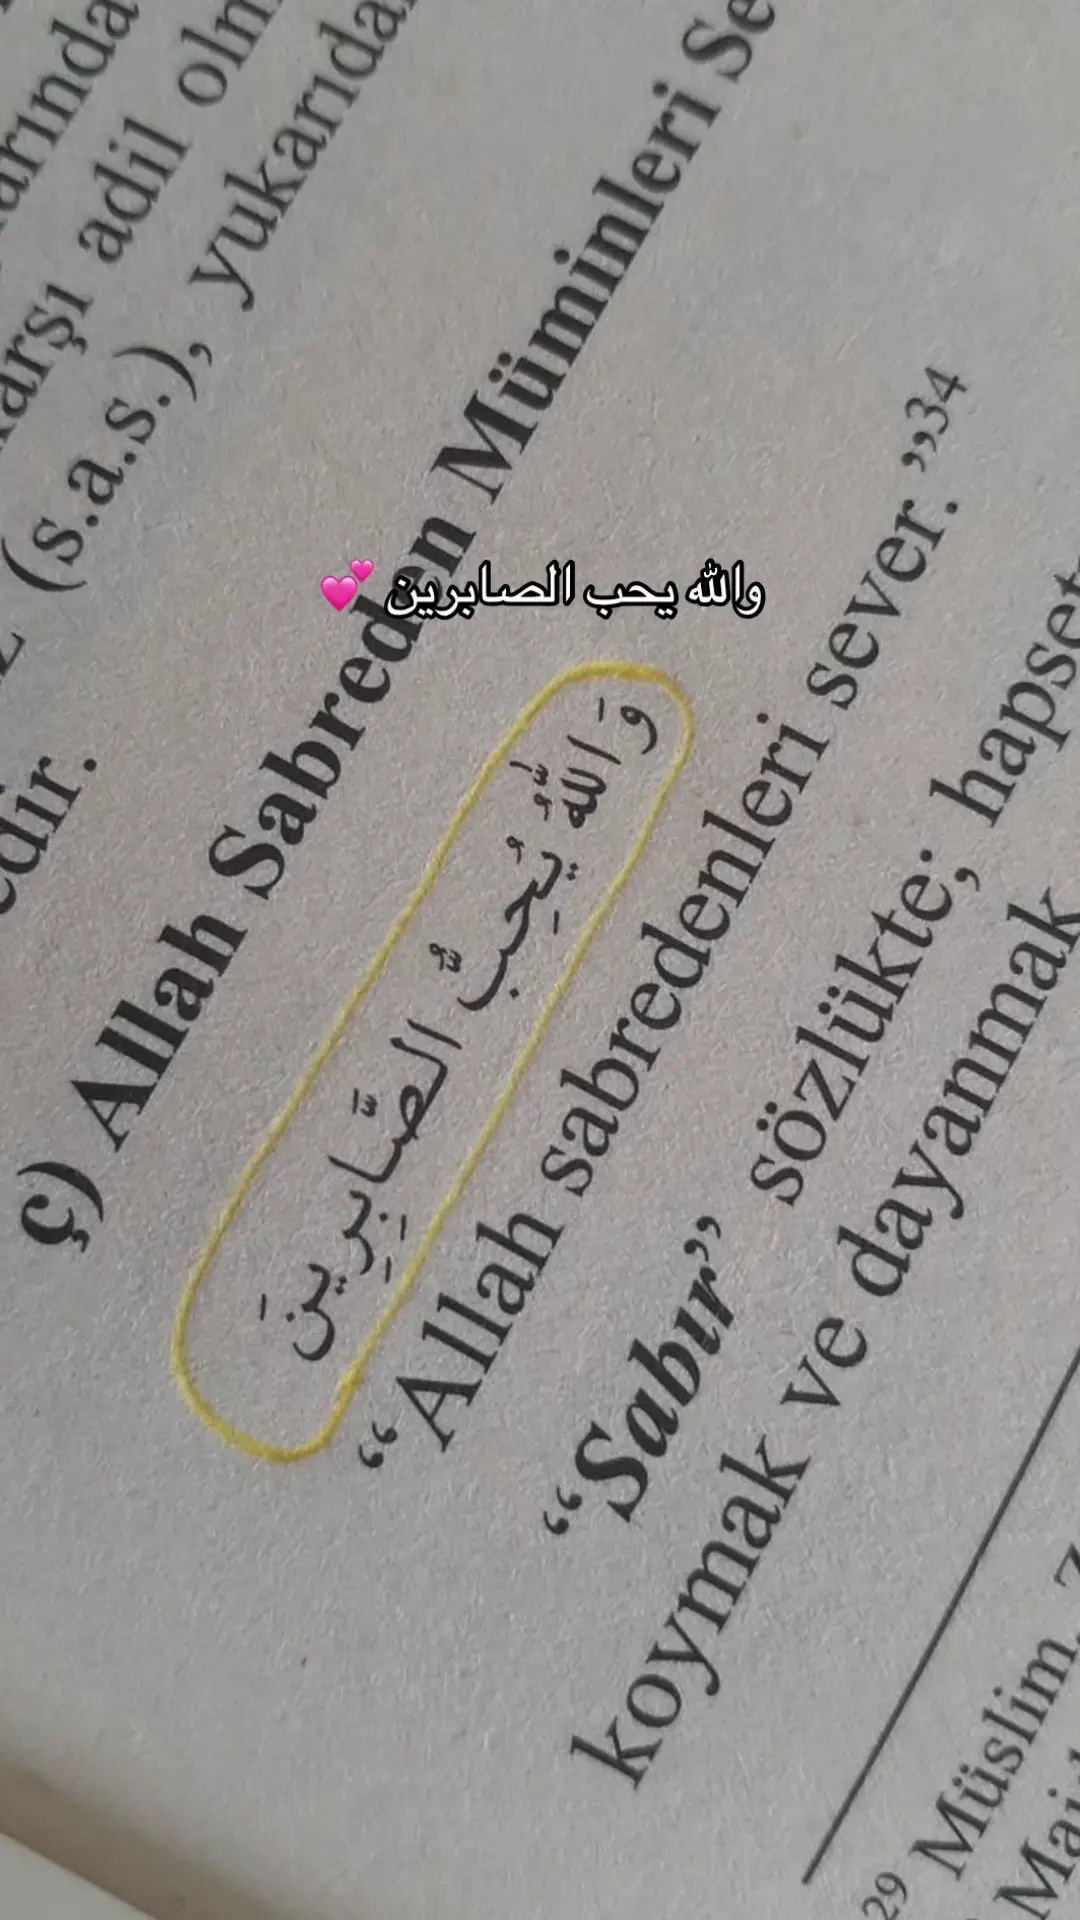 arında
karşı adil olm
(s.a.s.), yukarıda
edir.
ç) Allah Sabreden Müminleri Se
والله يحب الصابرين 💕
وَاللّٰهُ يُحِبُّ الصَّابِرِينَ
“Allah sabredenleri sever.”34
“Sabır” sözlükte; hapset
koymak ve dayanmak
29 Müslim,